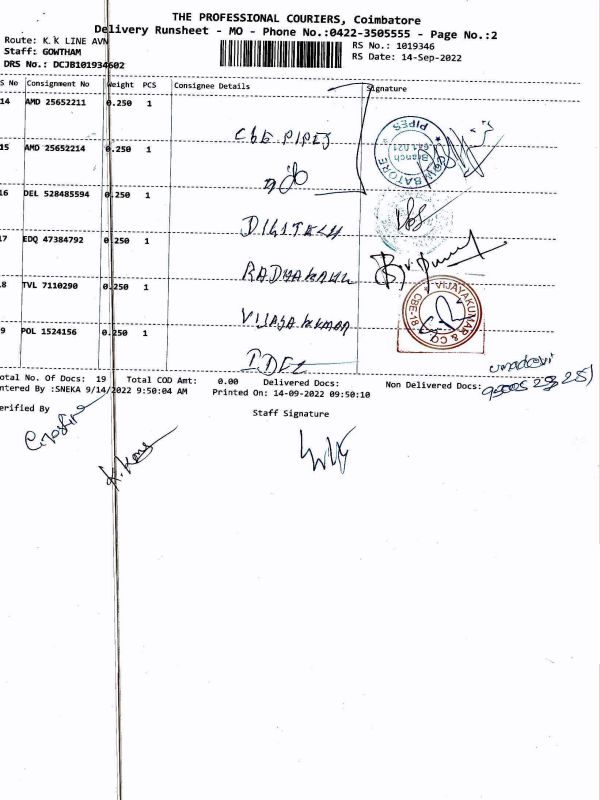 THE PROFESSIONAL COURIERS, Coimbatore
Delivery Runsheet - MO - Phone No.:0422-3505555 - Page No.:2
Route: K.K LINE AVN
RS No.: 1019346
Staff: GOWTHAM
RS Date: 14-Sep-2022
DRS No.: DCJB101934602
S No Consignment No Weight PCS Consignee Details Signature
14 AMD 25652211 0.250 1 CBE PIPES
PIPES
Branch
641 021
15 AMD 25652214 0.250 1
16 DEL 528485594 0.250 1
17 EDQ 47384792 0.250 1
18 TVL 7110290 0.250 1 VIJAYA KUMAR
VIJAYAKUMAR & CO. CBE-18
9 POL 1524156 0.250 1 IDEL
umadevi
otal No. Of Docs: 19 Total COD Amt: 0.00 Delivered Docs: Non Delivered Docs:
ntered By :SNEKA 9/14/2022 9:50:04 AM Printed On: 14-09-2022 09:50:10
erified By Staff Signature